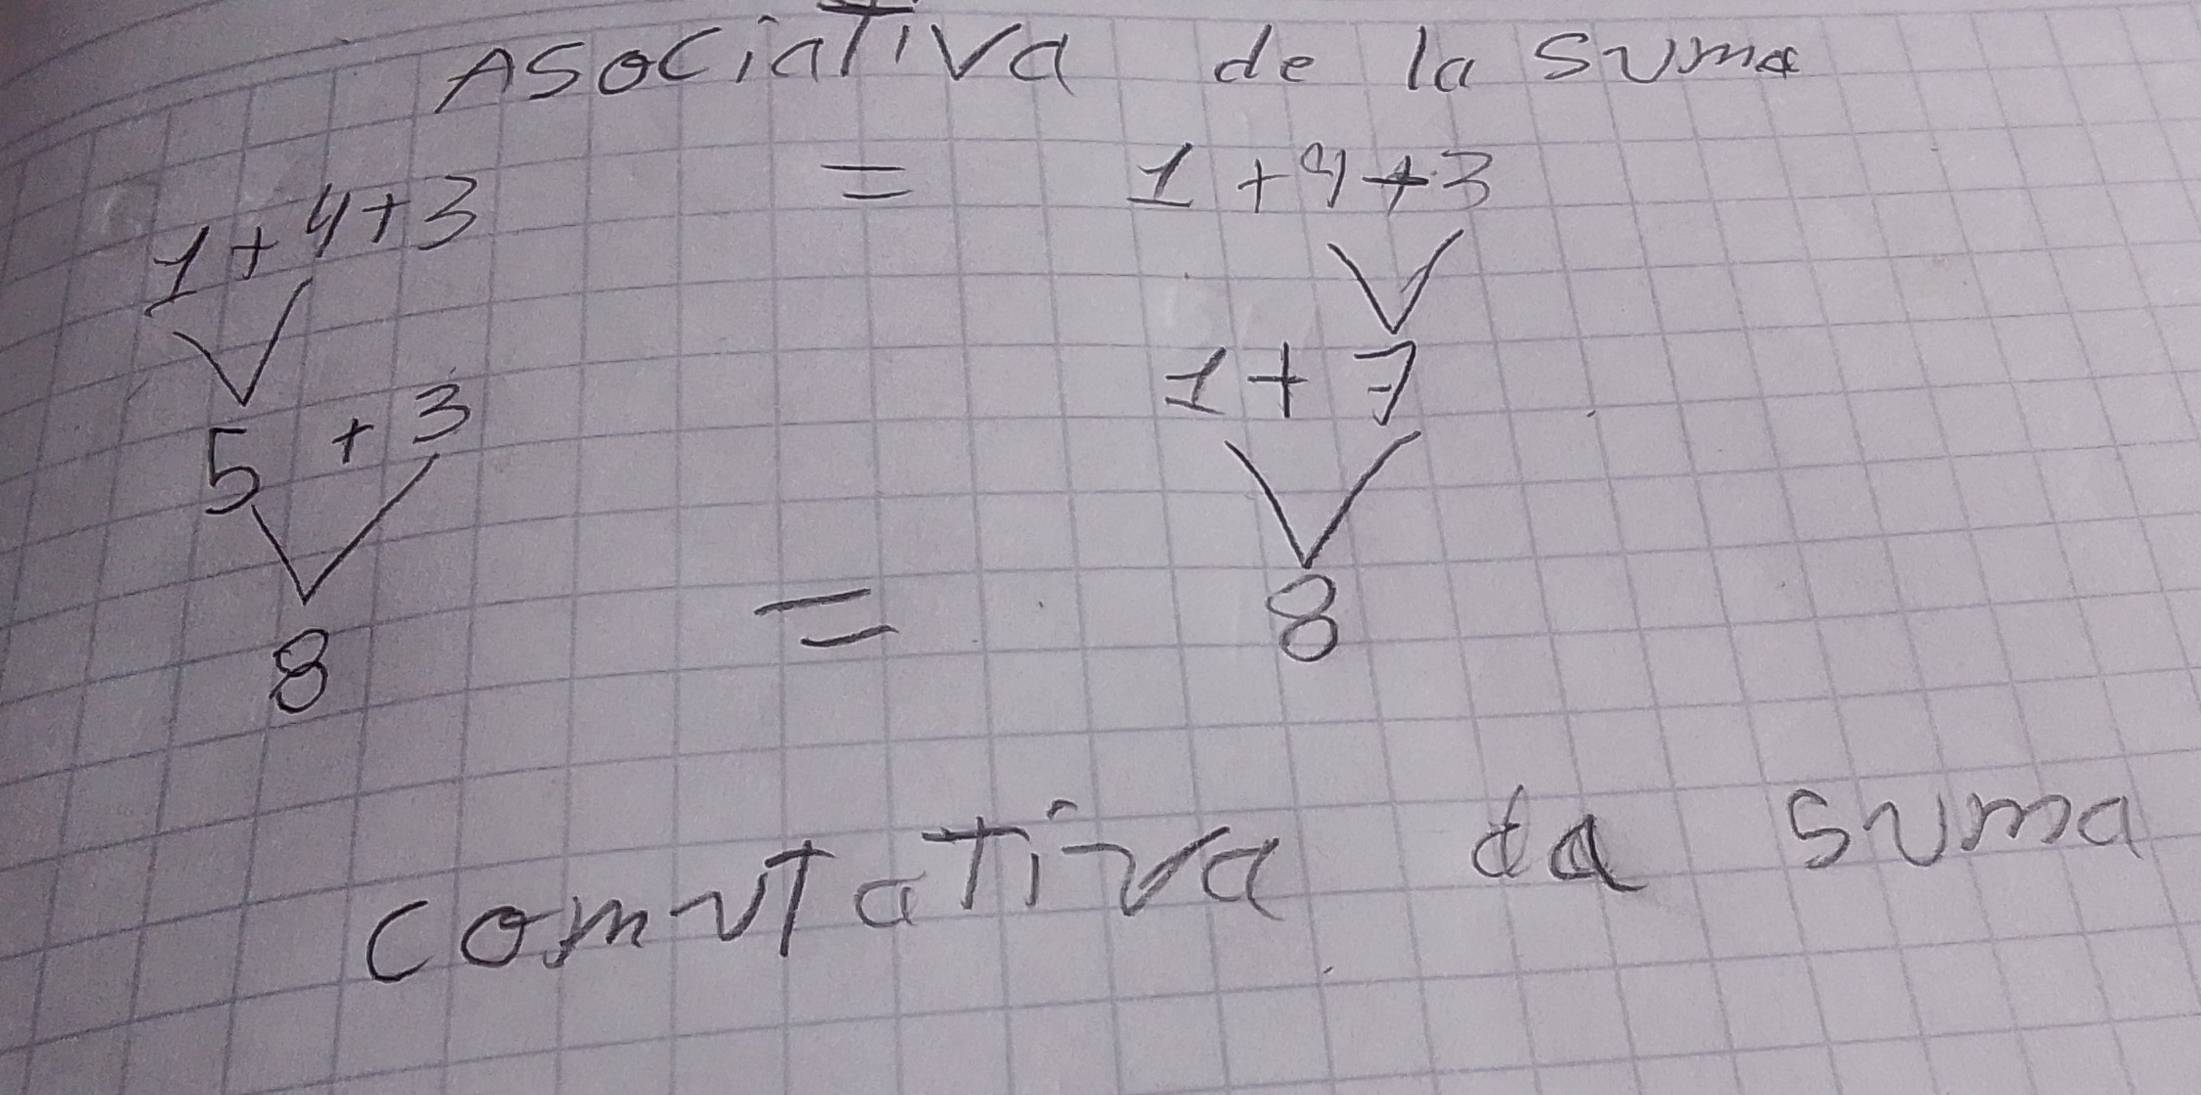 Asociativa de la suma
1+4+3 = 1+4+3
5 + 3 1+7
8 = 8
comutativa da suma